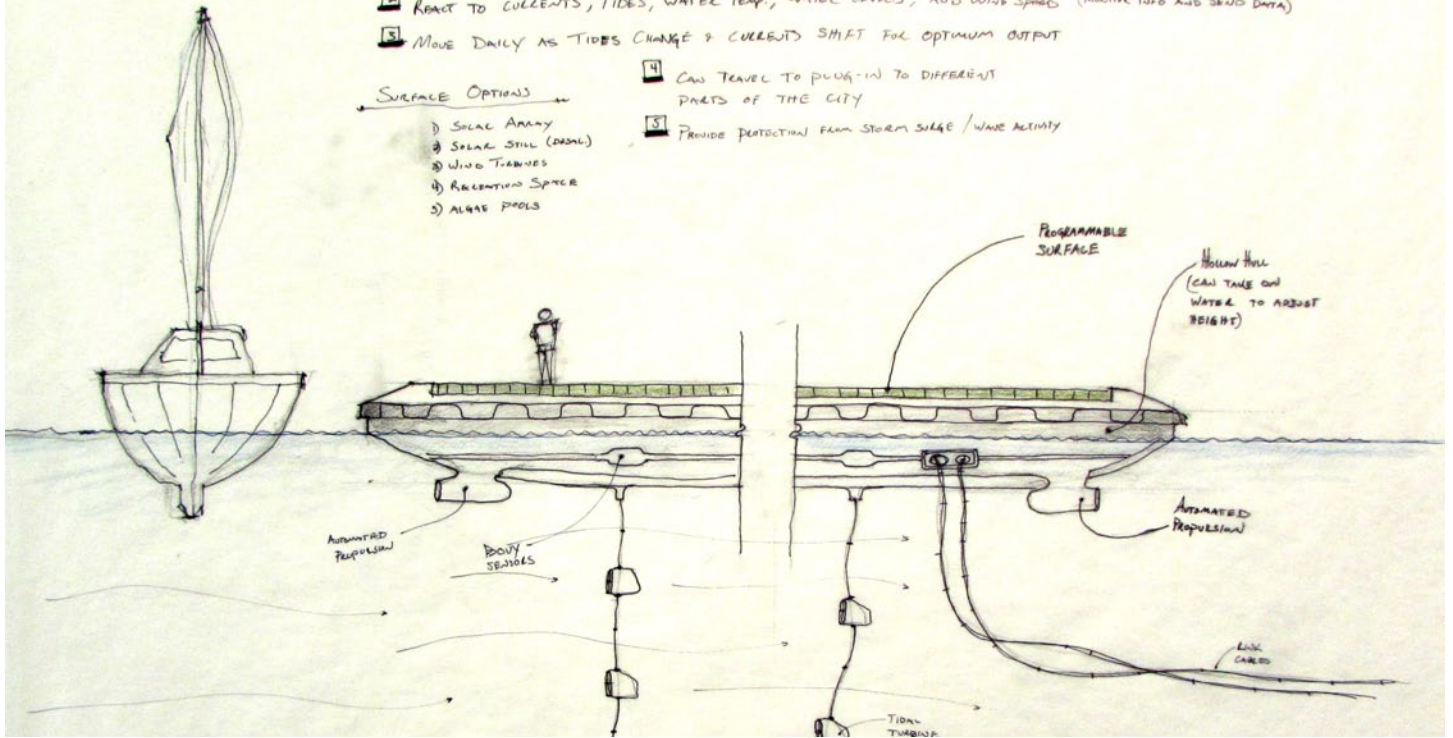 2 REACT TO CURRENTS, TIDES, WATER TEMP., WATER LEVELS, AND WIND SPEED (MONITOR INFO AND SEND DATA)
3 MOVE DAILY AS TIDES CHANGE & CURRENTS SHIFT FOR OPTIMUM OUTPUT
4 CAN TRAVEL TO PLUG-IN TO DIFFERENT
PARTS OF THE CITY
5 PROVIDE PROTECTION FROM STORM SURGE / WAVE ACTIVITY
SURFACE OPTIONS
1) SOLAR ARRAY
2) SOLAR STILL (DESAL.)
3) WIND TURBINES
4) RECREATION SPACE
5) ALGAE POOLS
PROGRAMMABLE
SURFACE
HOLLOW HULL
(CAN TAKE ON
WATER TO ADJUST
HEIGHT)
AUTOMATED
PROPURSION
BODY
SENSORS
AUTOMATED
PROPURSION
LINK
CABLES
TIDAL
TURBINE